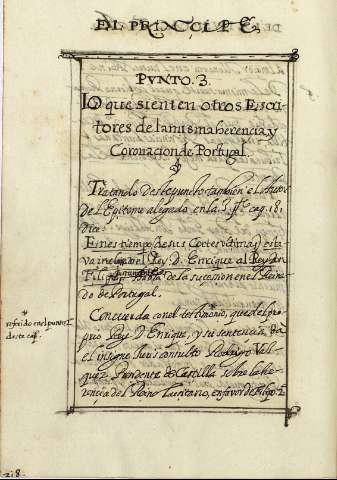 EL PRINCIPE
PVNTO. 3.
Lo que sienten otros Escri
tores de la misma herencia, y
Coronacion de Portugal.
Tratando deste punto tambien el Autor
del Epitome alegado en la 3. pte. cap. 18.
dice:
En este tiempo de sus Cortes ultimas esta
va inclinado el Rey D. Enrique al Rey Don
Filipe
de la sucesion en el Reino
do de Portugal.
Concuerda con el testimonio, que del pro
prio Rey D. Enrique, y su sentencia,
el insigne Jurisconsulto Rodrigo Vas
quez Presidente de Castilla sobre la he
rencia del Reino Lusitano, en favor de Filipo
referido en el punto 1
deste cap.
218.